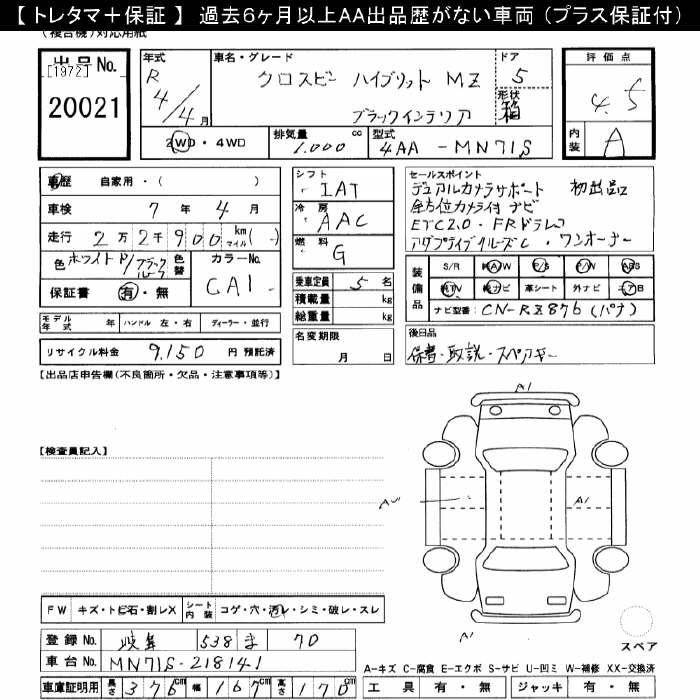 【 トレタマ＋保証 】 過去6ヶ月以上AA出品歴がない車両 (プラス保証付)
(複合機)対応用紙
出品No. [1972] 20021
年式 R 4/4月
車名・グレード クロスビー ハイブリット MZ ブラックインテリア
ドア 5
形状 箱
評価点 4.5
2WD・4WD
排気量 1.000 cc
型式 4AA-MN71S
内装 A
車歴 自家用・( )
車検 7年 4月
走行 2万2千900 km マイル(-)
色 ホワイトP/ブラックルーフ 色替 カラーNo. CA1-
保証書 有・無
モデル年式 年 ハンドル 左・右 ディーラー・並行
リサイクル料金 9.150 円 預託済
シフト IAT
冷房 AAC
燃料 G
乗車定員 5 名
積載量 kg
総重量 kg
名変期限 月 日
セールスポイント
デュアルカメラサポート 初出品
全方位カメラ付ナビ
ETC2.0・FRドラレコ
アダプティブクルーズC・ワンオーナー
装備品 S/R A/W P/S P/W ABS
TV ナビ 革シート 外ナビ エアB
ナビ型番: CN-RZ876 (パナ)
後日品
保書・取説・スペアキー
【出品店申告欄(不良箇所・欠品・注意事項等)】
【検査員記入】
A1
A1
A1
FW キズ・トビ石・割レX シート内装 コゲ・穴・汚レ・シミ・破レ・スレ
登録No. 岐阜 538 ま 70
車台No. MN71S-218141
車庫証明用 長さ 376cm 幅 167cm 高さ 170cm
スペア
A-キズ C-腐食 E-エクボ S-サビ U-凹ミ W-補修 XX-交換済
工具 有・無 ジャッキ 有・無